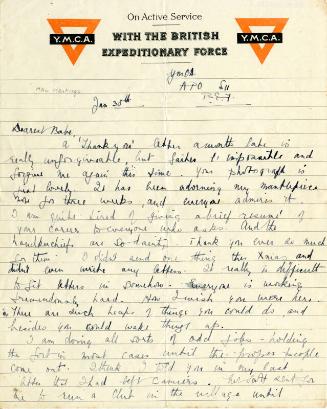 On Active Service
Y.M.C.A.
WITH THE BRITISH
EXPEDITIONARY FORCE
Y.M.C.A.
YMCA
APO S11
B.E.F.
Jan 30th
Dearest Babe,
A 'Thankyou' letter a month late is
really unforgiveable, but, further to impossible and
forgive me again this time. Your photograph is
just lovely. It has been adorning my mantelpiece
now for three weeks, and everyone admires it.
I am quite tired of giving a brief resumé of
your career to everyone who asks. And the
handkerchiefs are so dainty. Thank you ever so much
for them. I didn't send one thing this Xmas, and
didn't even write any letters. It really is difficult
to fit letters in somehow. Everyone is working
tremendously hard. How I wish you were here.
There are such heaps of things you could do and
besides you could wake things up.
I am doing all sorts of odd jobs - holding
the fort in most cases until the proper people
come out. I think I told you in my last
letter that I had left Camiers. They sent for
me to run a Club in the village until